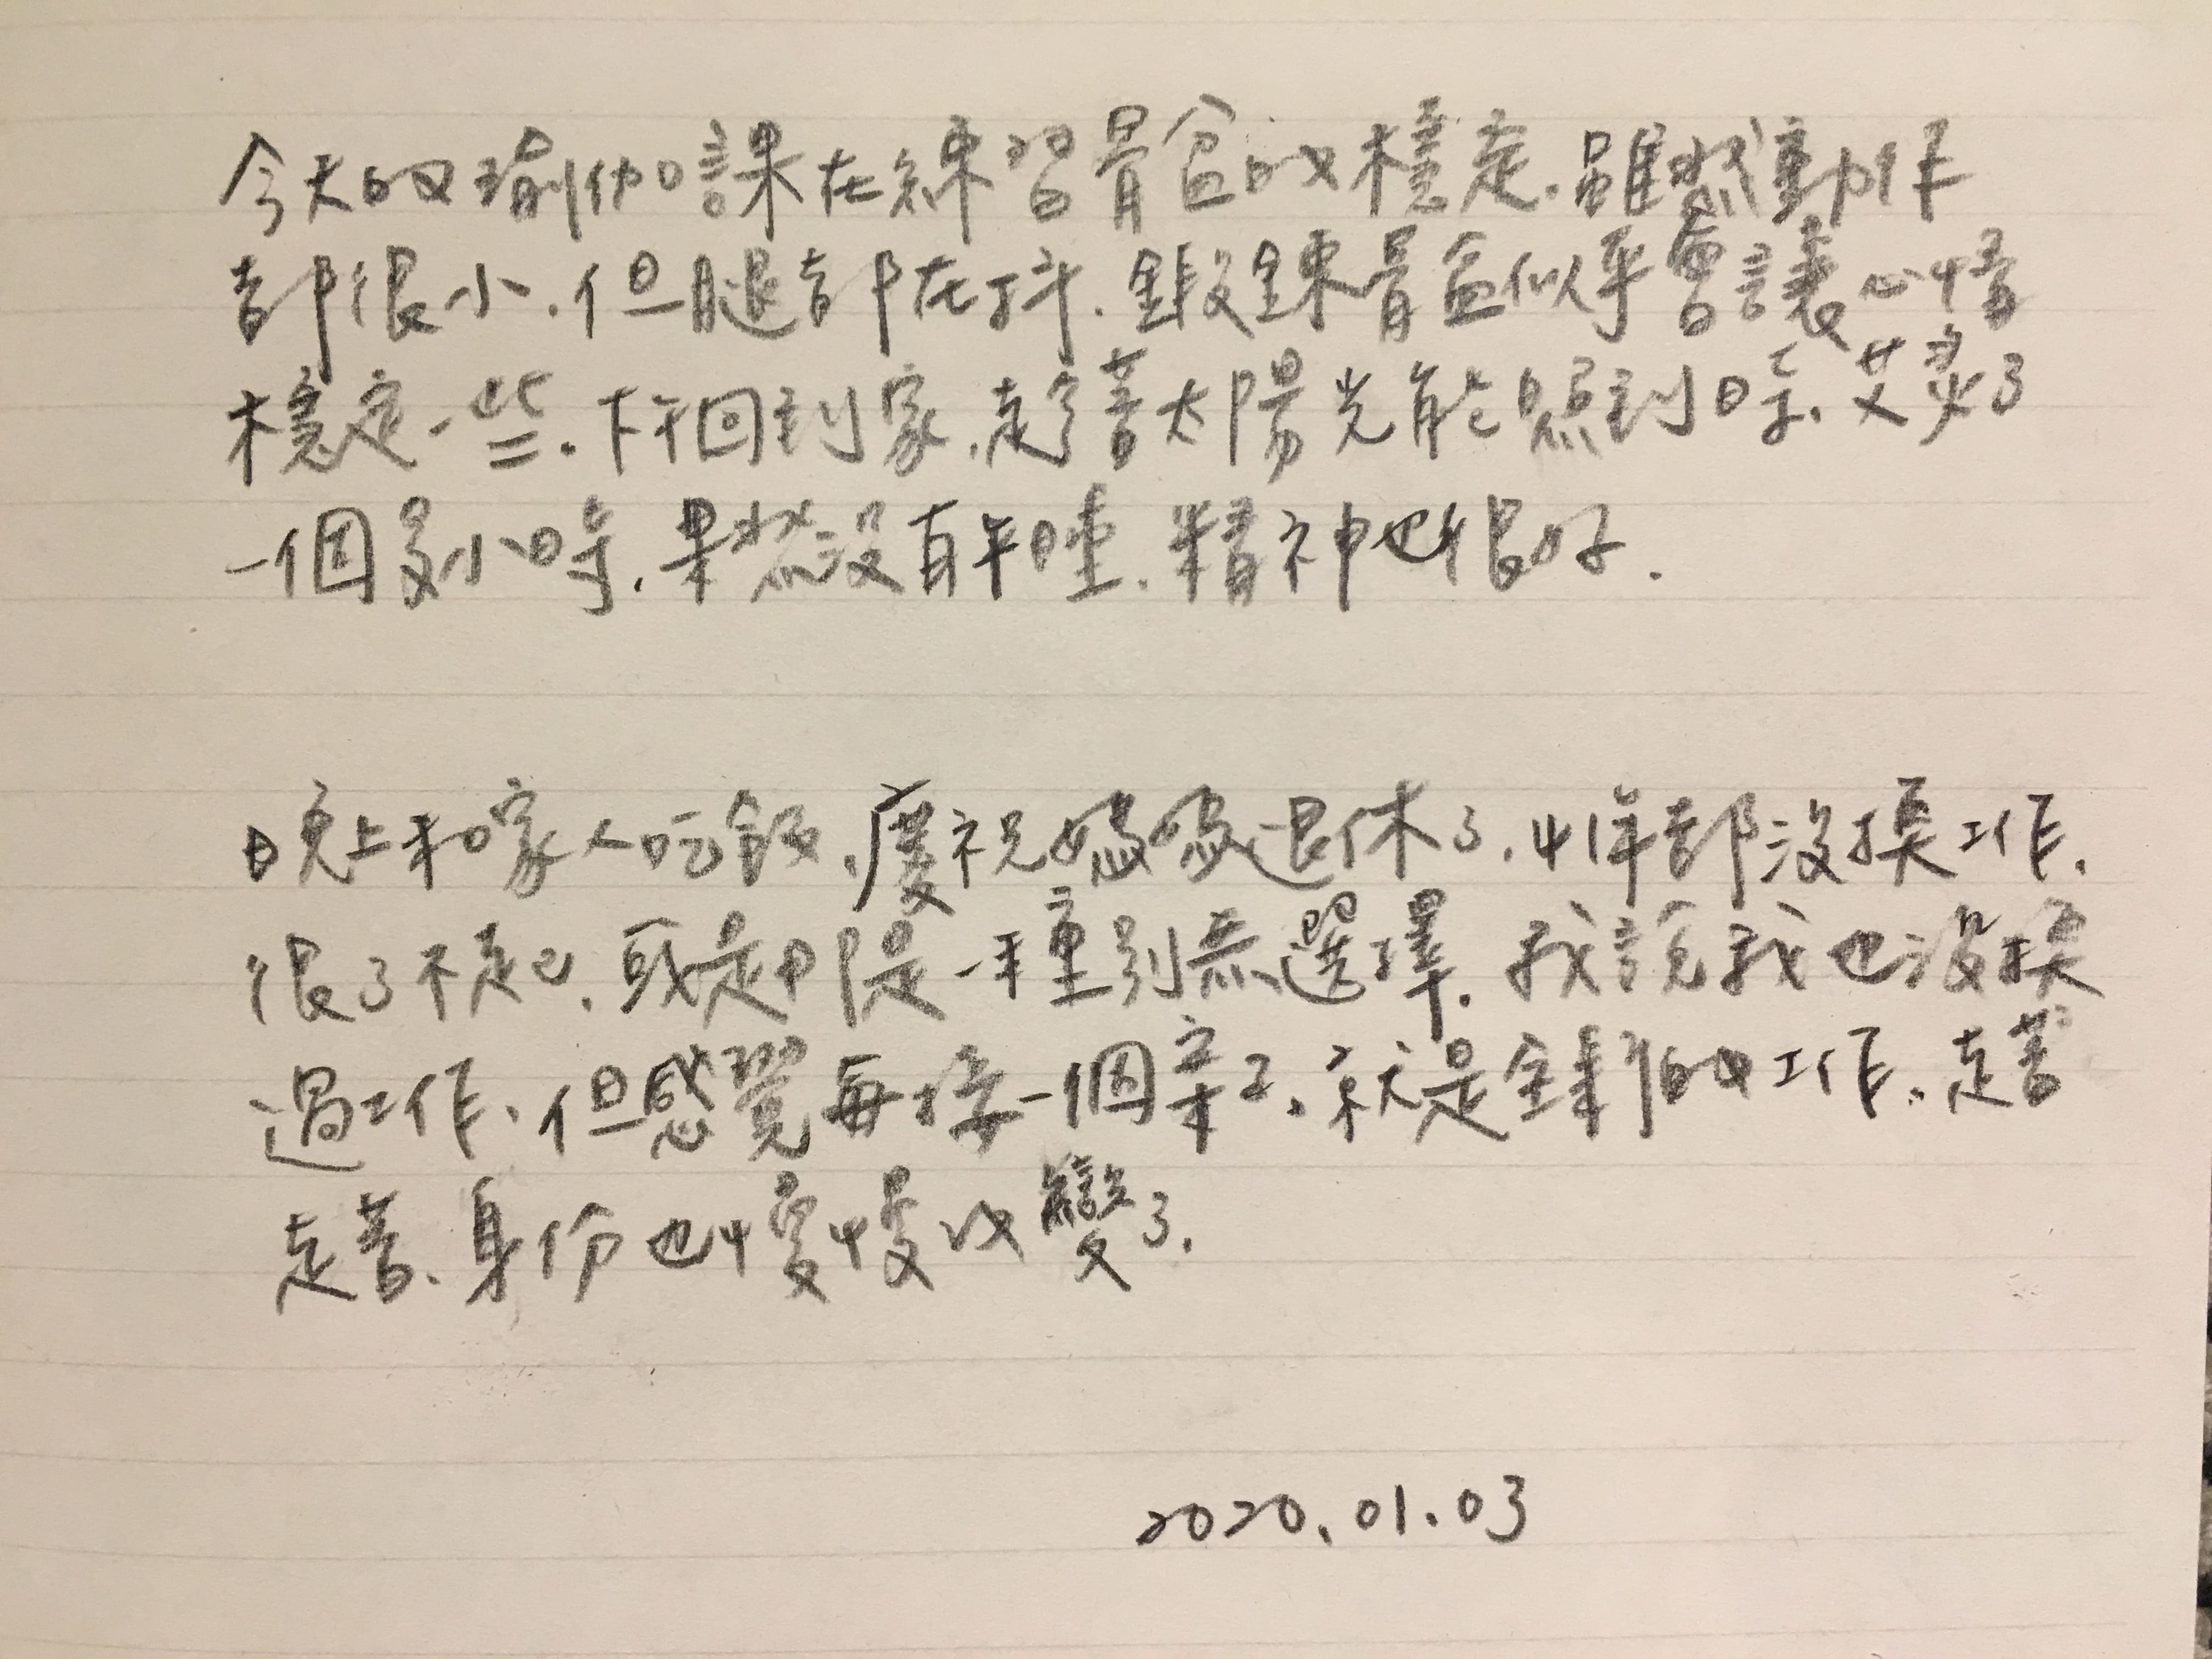 今天的瑜伽課在練習骨盆的穩定.雖然動作
都很小.但腿都在抖.鍛鍊骨盆似乎會讓心情
穩定一些.下午回到家.趁著太陽光能照到時.艾灸了
一個多小時.果然沒有午睡.精神也很好.
晚上和家人吃飯.慶祝媽媽退休了.41年都沒換工作.
很了不起.或是那是一種別無選擇.我說我也沒換
過工作.但感覺每接一個案子.就是全新的工作.走著
走著.身份也慢慢改變了.
2020.01.03